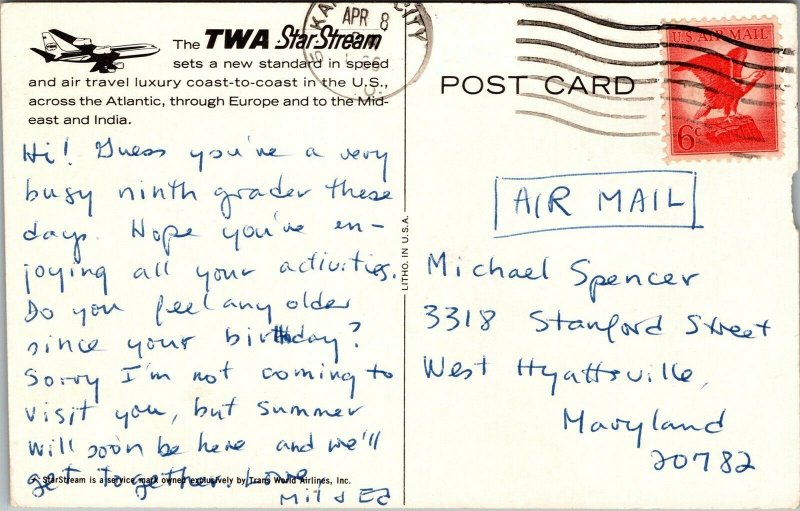 The TWA StarStream
sets a new standard in speed
and air travel luxury coast-to-coast in the U.S.,
across the Atlantic, through Europe and to the Mid-
east and India.
Hi! Guess you've a very
busy ninth grader these
days. Hope you've en-
joying all your activities.
Do you feel any older
since your birthday?
Sorry I'm not coming to
visit you, but summer
will soon be here and we'll
get together. Love
Mil & Ed
StarStream is a service mark owned exclusively by Trans World Airlines, Inc.
LITHO. IN U.S.A.
APR 8
CITY
POST CARD
U.S. AIR MAIL
6c
AIR MAIL
Michael Spencer
3318 Stanford Street
West Hyattsville,
Maryland
20782